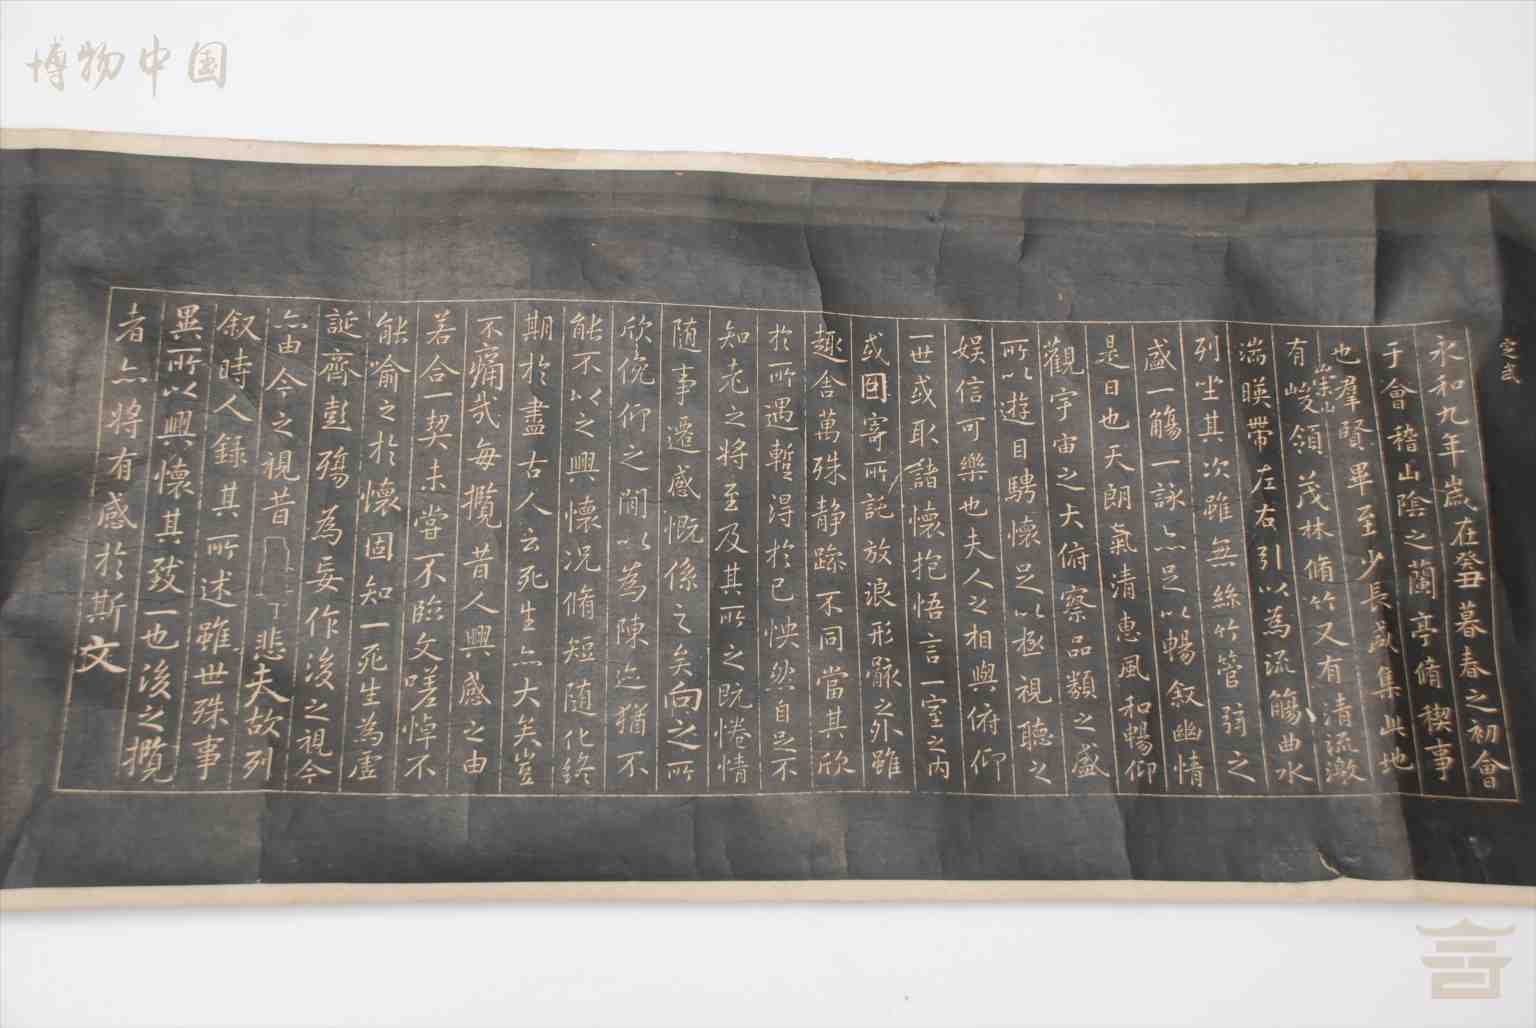 博物中国
定武
永和九年歲在癸丑暮春之初會
于會稽山陰之蘭亭脩稧事
也羣賢畢至少長咸集此地
有崇山峻領茂林脩竹又有清流激
湍暎帶左右引以為流觴曲水
列坐其次雖無絲竹管弦之
盛一觴一詠亦足以暢敘幽情
是日也天朗氣清惠風和暢仰
觀宇宙之大俯察品類之盛
所以遊目騁懷足以極視聽之
娛信可樂也夫人之相與俯仰
一世或取諸懷抱悟言一室之內
或因寄所託放浪形骸之外雖
趣舍萬殊静躁不同當其欣
於所遇蹔得於己怏然自足不
知老之將至及其所之既惓情
随事遷感慨係之矣向之所
欣俛仰之閒以為陳迹猶不
能不以之興懷况脩短随化終
期於盡古人云死生亦大矣豈
不痛哉每攬昔人興感之由
若合一契未嘗不臨文嗟悼不
能喻之於懷固知一死生為虛
誕齊彭殤為妄作後之視今
亦由今之視昔
悲夫故列
叙時人錄其所述雖世殊事
異所以興懷其致一也後之攬
者亦將有感於斯文